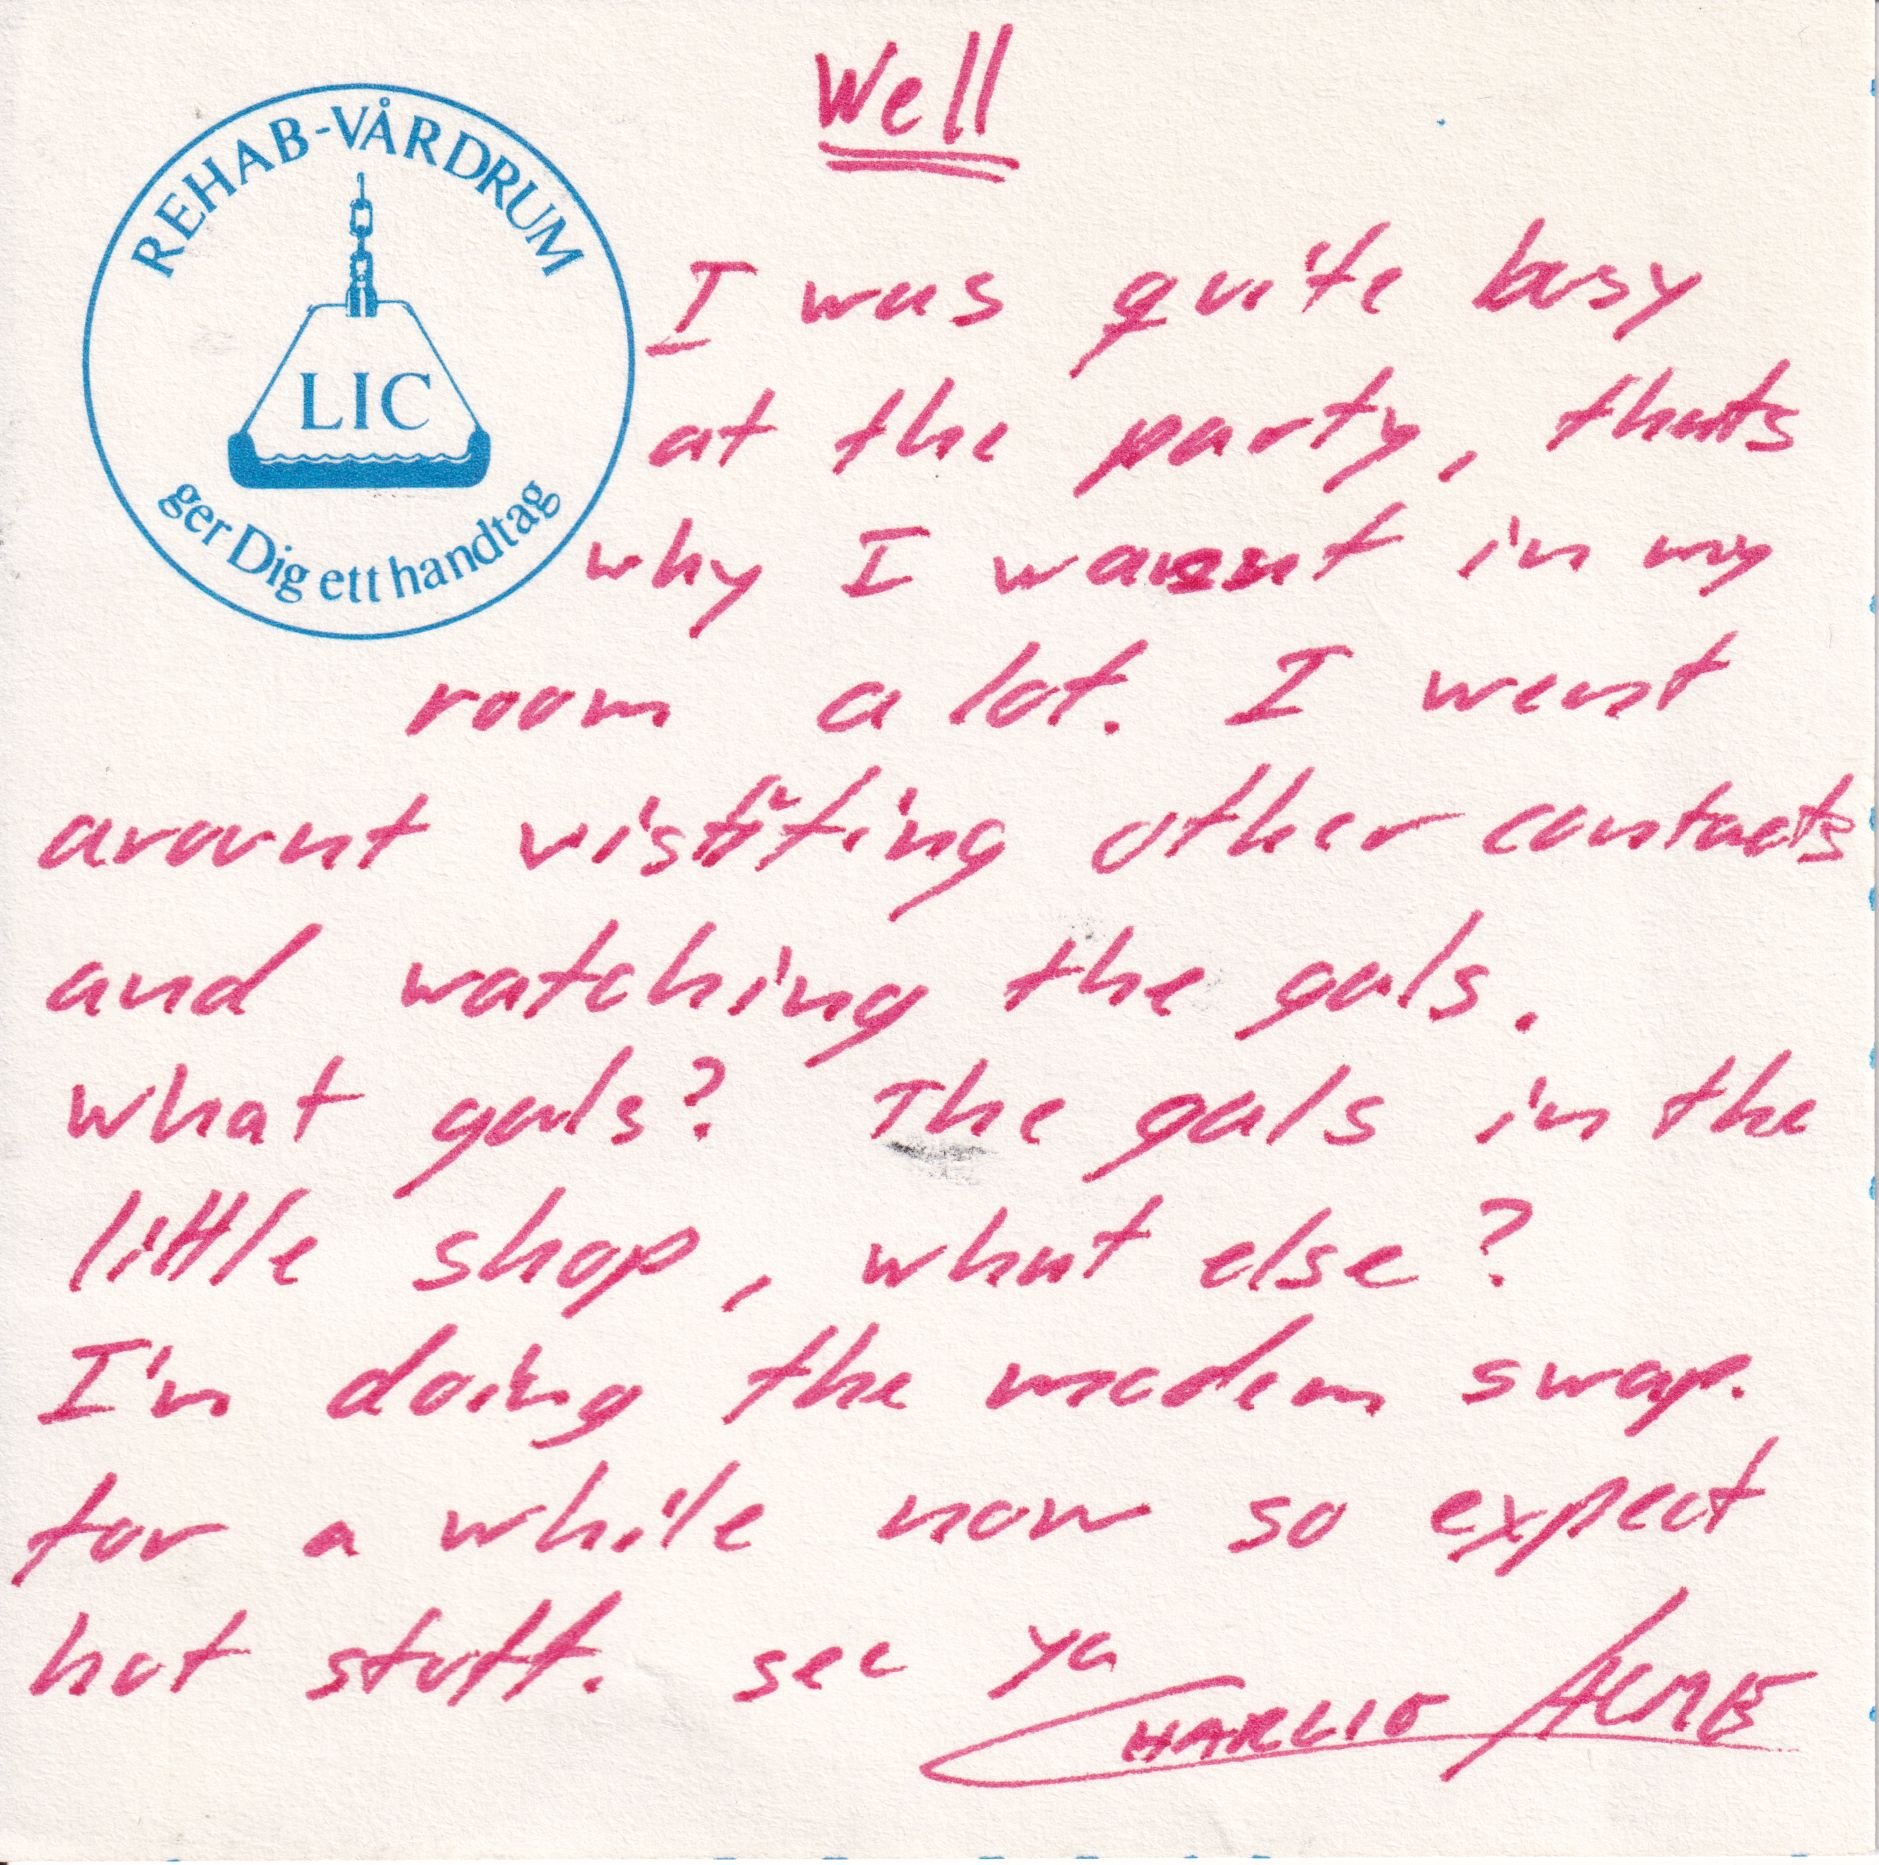 Well
REHAB-VÅRDRUM
LIC
ger Dig ett handtag
I was quite busy
at the party, thats
why I wasnt in my
room a lot. I went
arount visiting other contacts
and watching the gals.
What gals? The gals in the
little shop, what else?
I'm doing the modem swap.
for a while now so expect
hot stuff. see ya
CHARLIE ACME